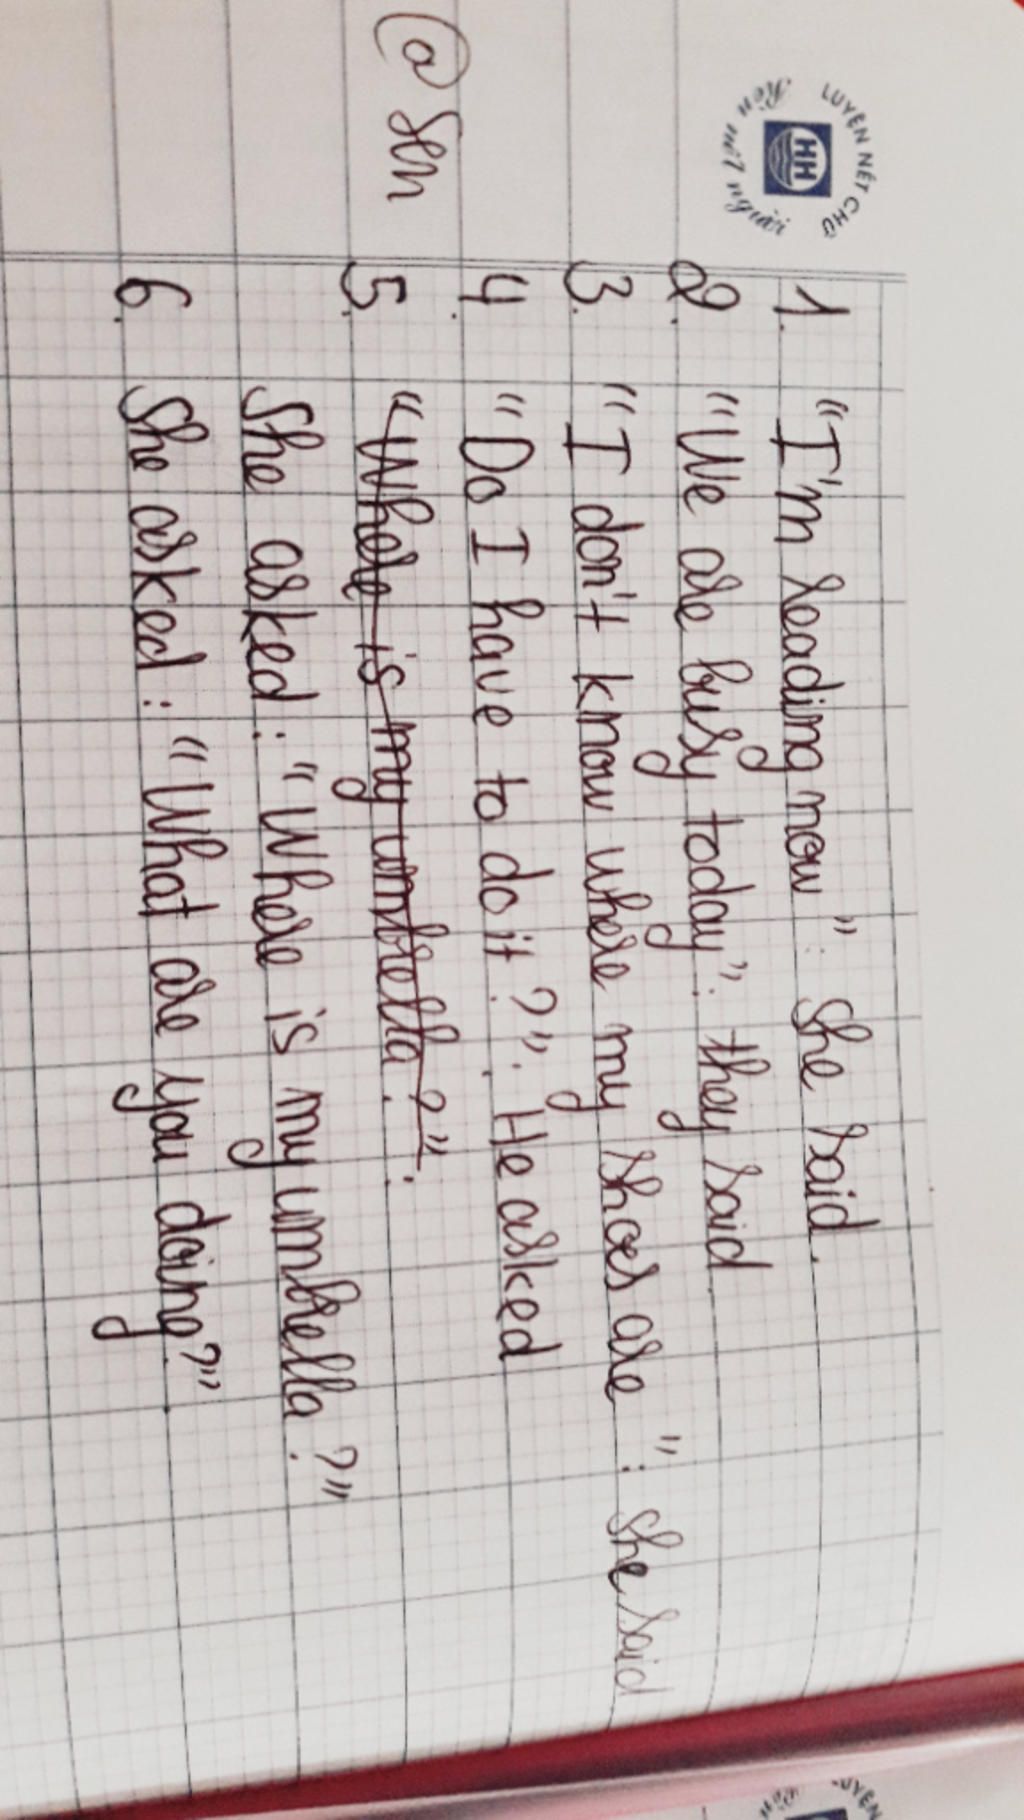 LUYỆN NÉT CHỮ
Rèn nết người
HH
1. "I'm reading now": she said.
2. "We are busy today": they said
3. "I don't know where my shoes are": she said
4. "Do I have to do it?": He asked
5. "Where is my umbrella?":
She asked: "Where is my umbrella?"
6. She asked: "What are you doing?"
@Sen
LUYỆN
Rèn